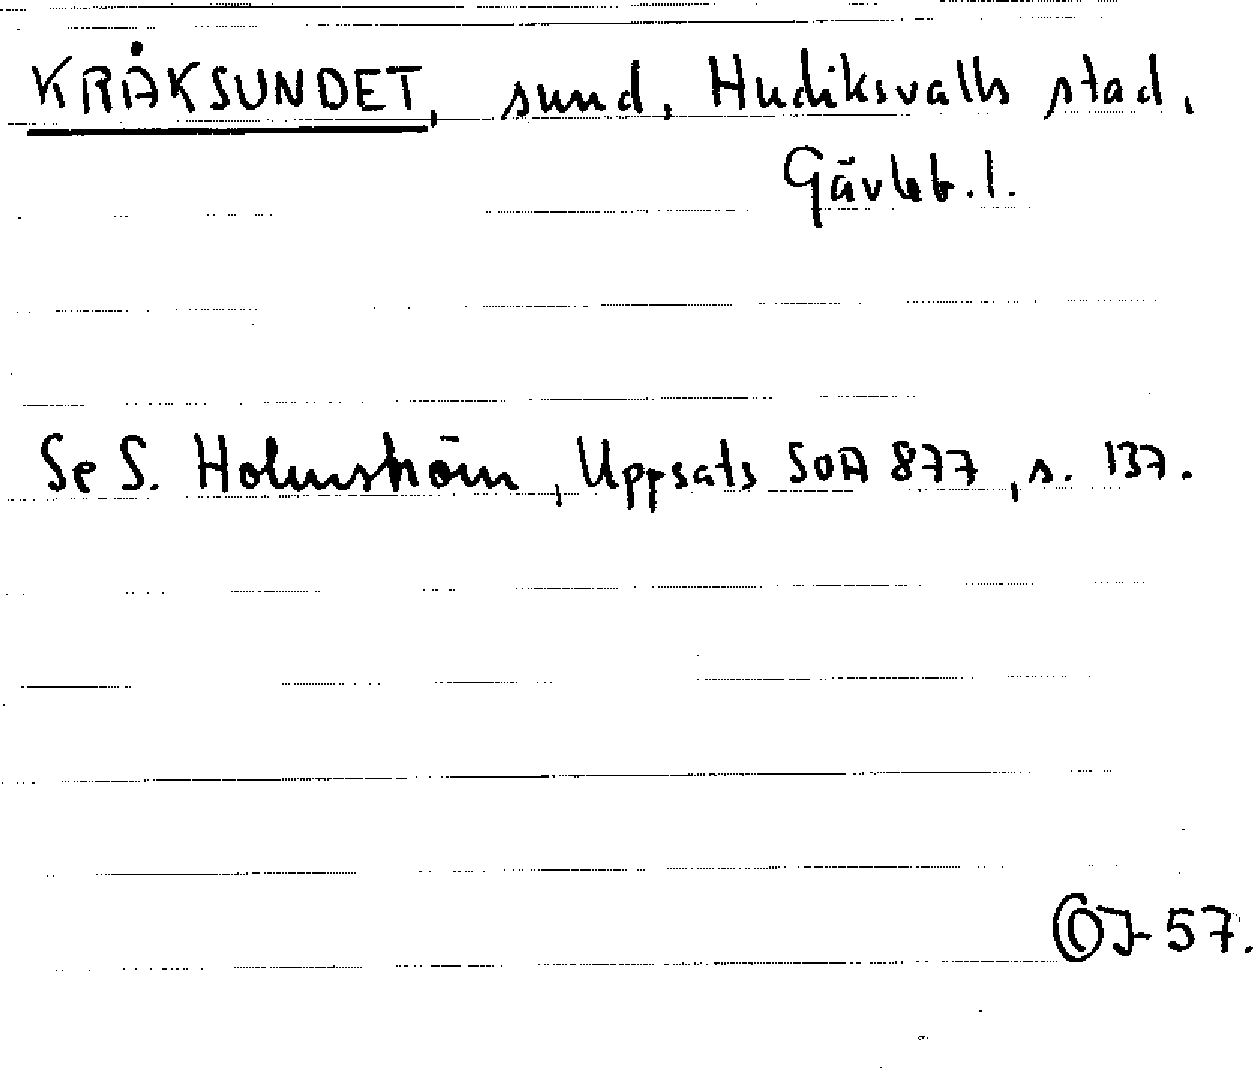 KRÅKSUNDET, sund, Hudiksvalls stad,
Gävleb. l.
Se S. Holmström, Uppsats SOA 877, s. 137.
57.